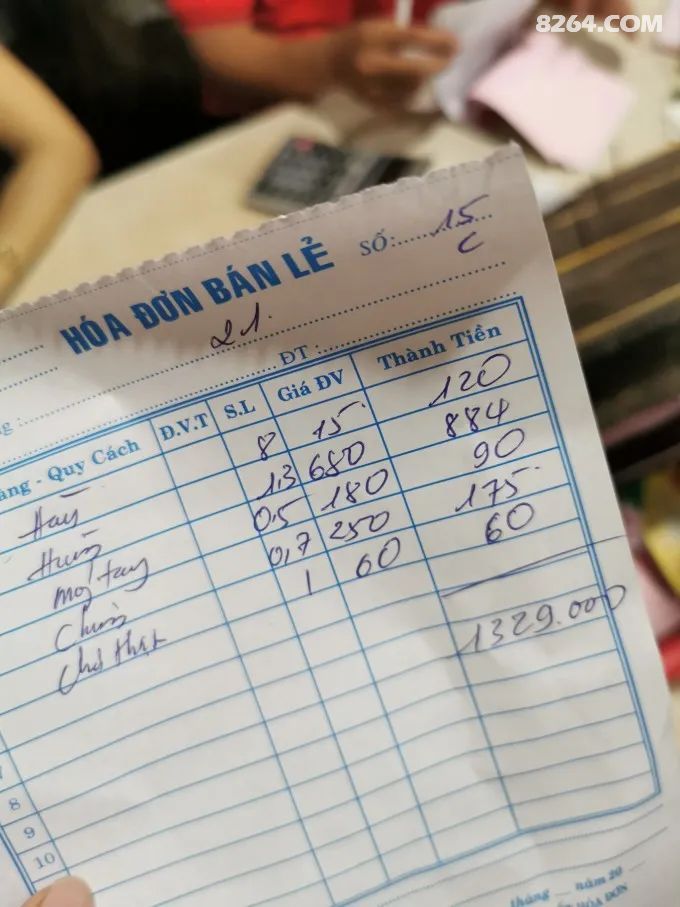 8264.COM
SỐ:......15
C
HÓA ĐƠN BÁN LẺ
21.
ĐT :
àng - Quy Cách Đ.V.T S.L Giá ĐV Thành Tiền
Hàu 8 15 120
1,3 680 884
móng tay 0,5 180 90
0,7 250 175
1 60 60
1329.000
8
9
10
tháng năm 20
HÓA ĐƠN